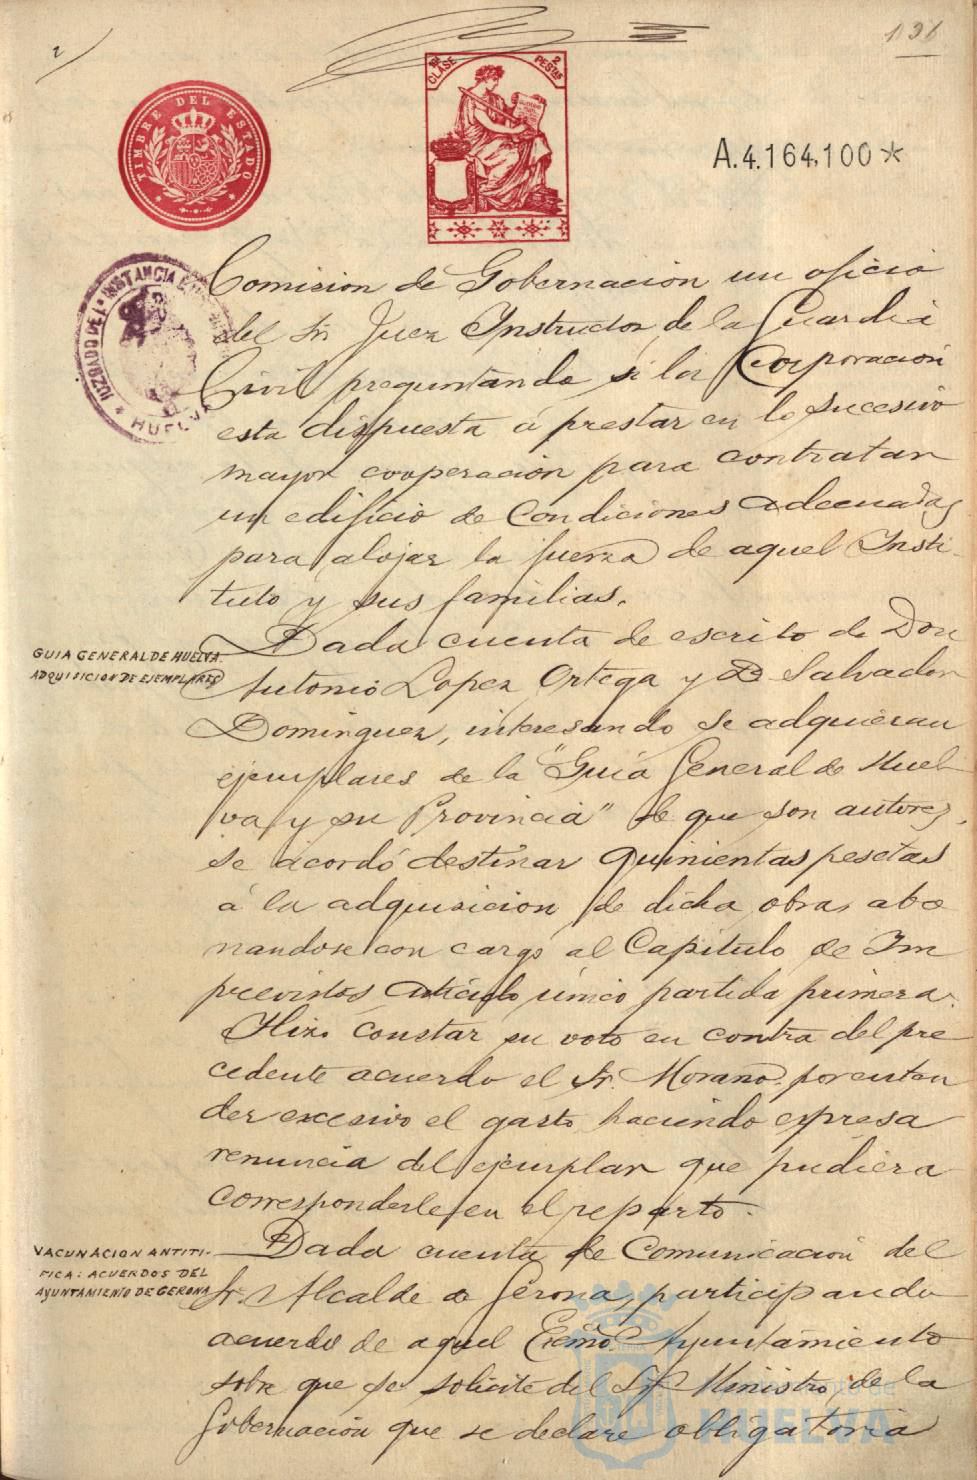 136
10ª CLASE 2 PESTAS
TIMBRE DEL ESTADO
A.4.164.100*
JUZGADO DE 1ª INSTANCIA
HUELVA
Comision de Gobernacion un oficio
del Sr. Juez Instructor de la Guardia
Civil preguntando si la Corporacion
esta dispuesta á prestar en lo sucesivo
mayor cooperacion para contratar
un edificio de condiciones adecuadas
para alojar la fuerza de aquel Insti-
tuto y sus familias.
GUIA GENERAL DE HUELVA.
ADQUISICION DE EJEMPLARES
Dada cuenta de escrito de Don
Antonio Lopez Ortega y D. Salvador
Dominguez, interesando se adquieran
ejemplares de la "Guia General de Huel-
va y su Provincia" de que son autores,
se acordó destinar quinientas pesetas
á la adquisicion de dicha obra, abo
nandose con cargo al Capitulo de Im
previstos articulo único partida primera.
Hizo constar su voto en contra del pre
cedente acuerdo el Sr. Morano por enten
der excesivo el gasto haciendo expresa
renuncia del ejemplar que pudiera
corresponderle en el reparto.
VACUNACION ANTITI-
FICA: ACUERDOS DEL
AYUNTAMIENTO DE GERONA
Dada cuenta de comunicacion del
Sr. Alcalde de Gerona, participando
acuerdo de aquel Excmo. Ayuntamiento
sobre que se solicite del Sr. Ministro de la
Gobernacion que se declare obligatoria
Ayuntamiento de
HUELVA